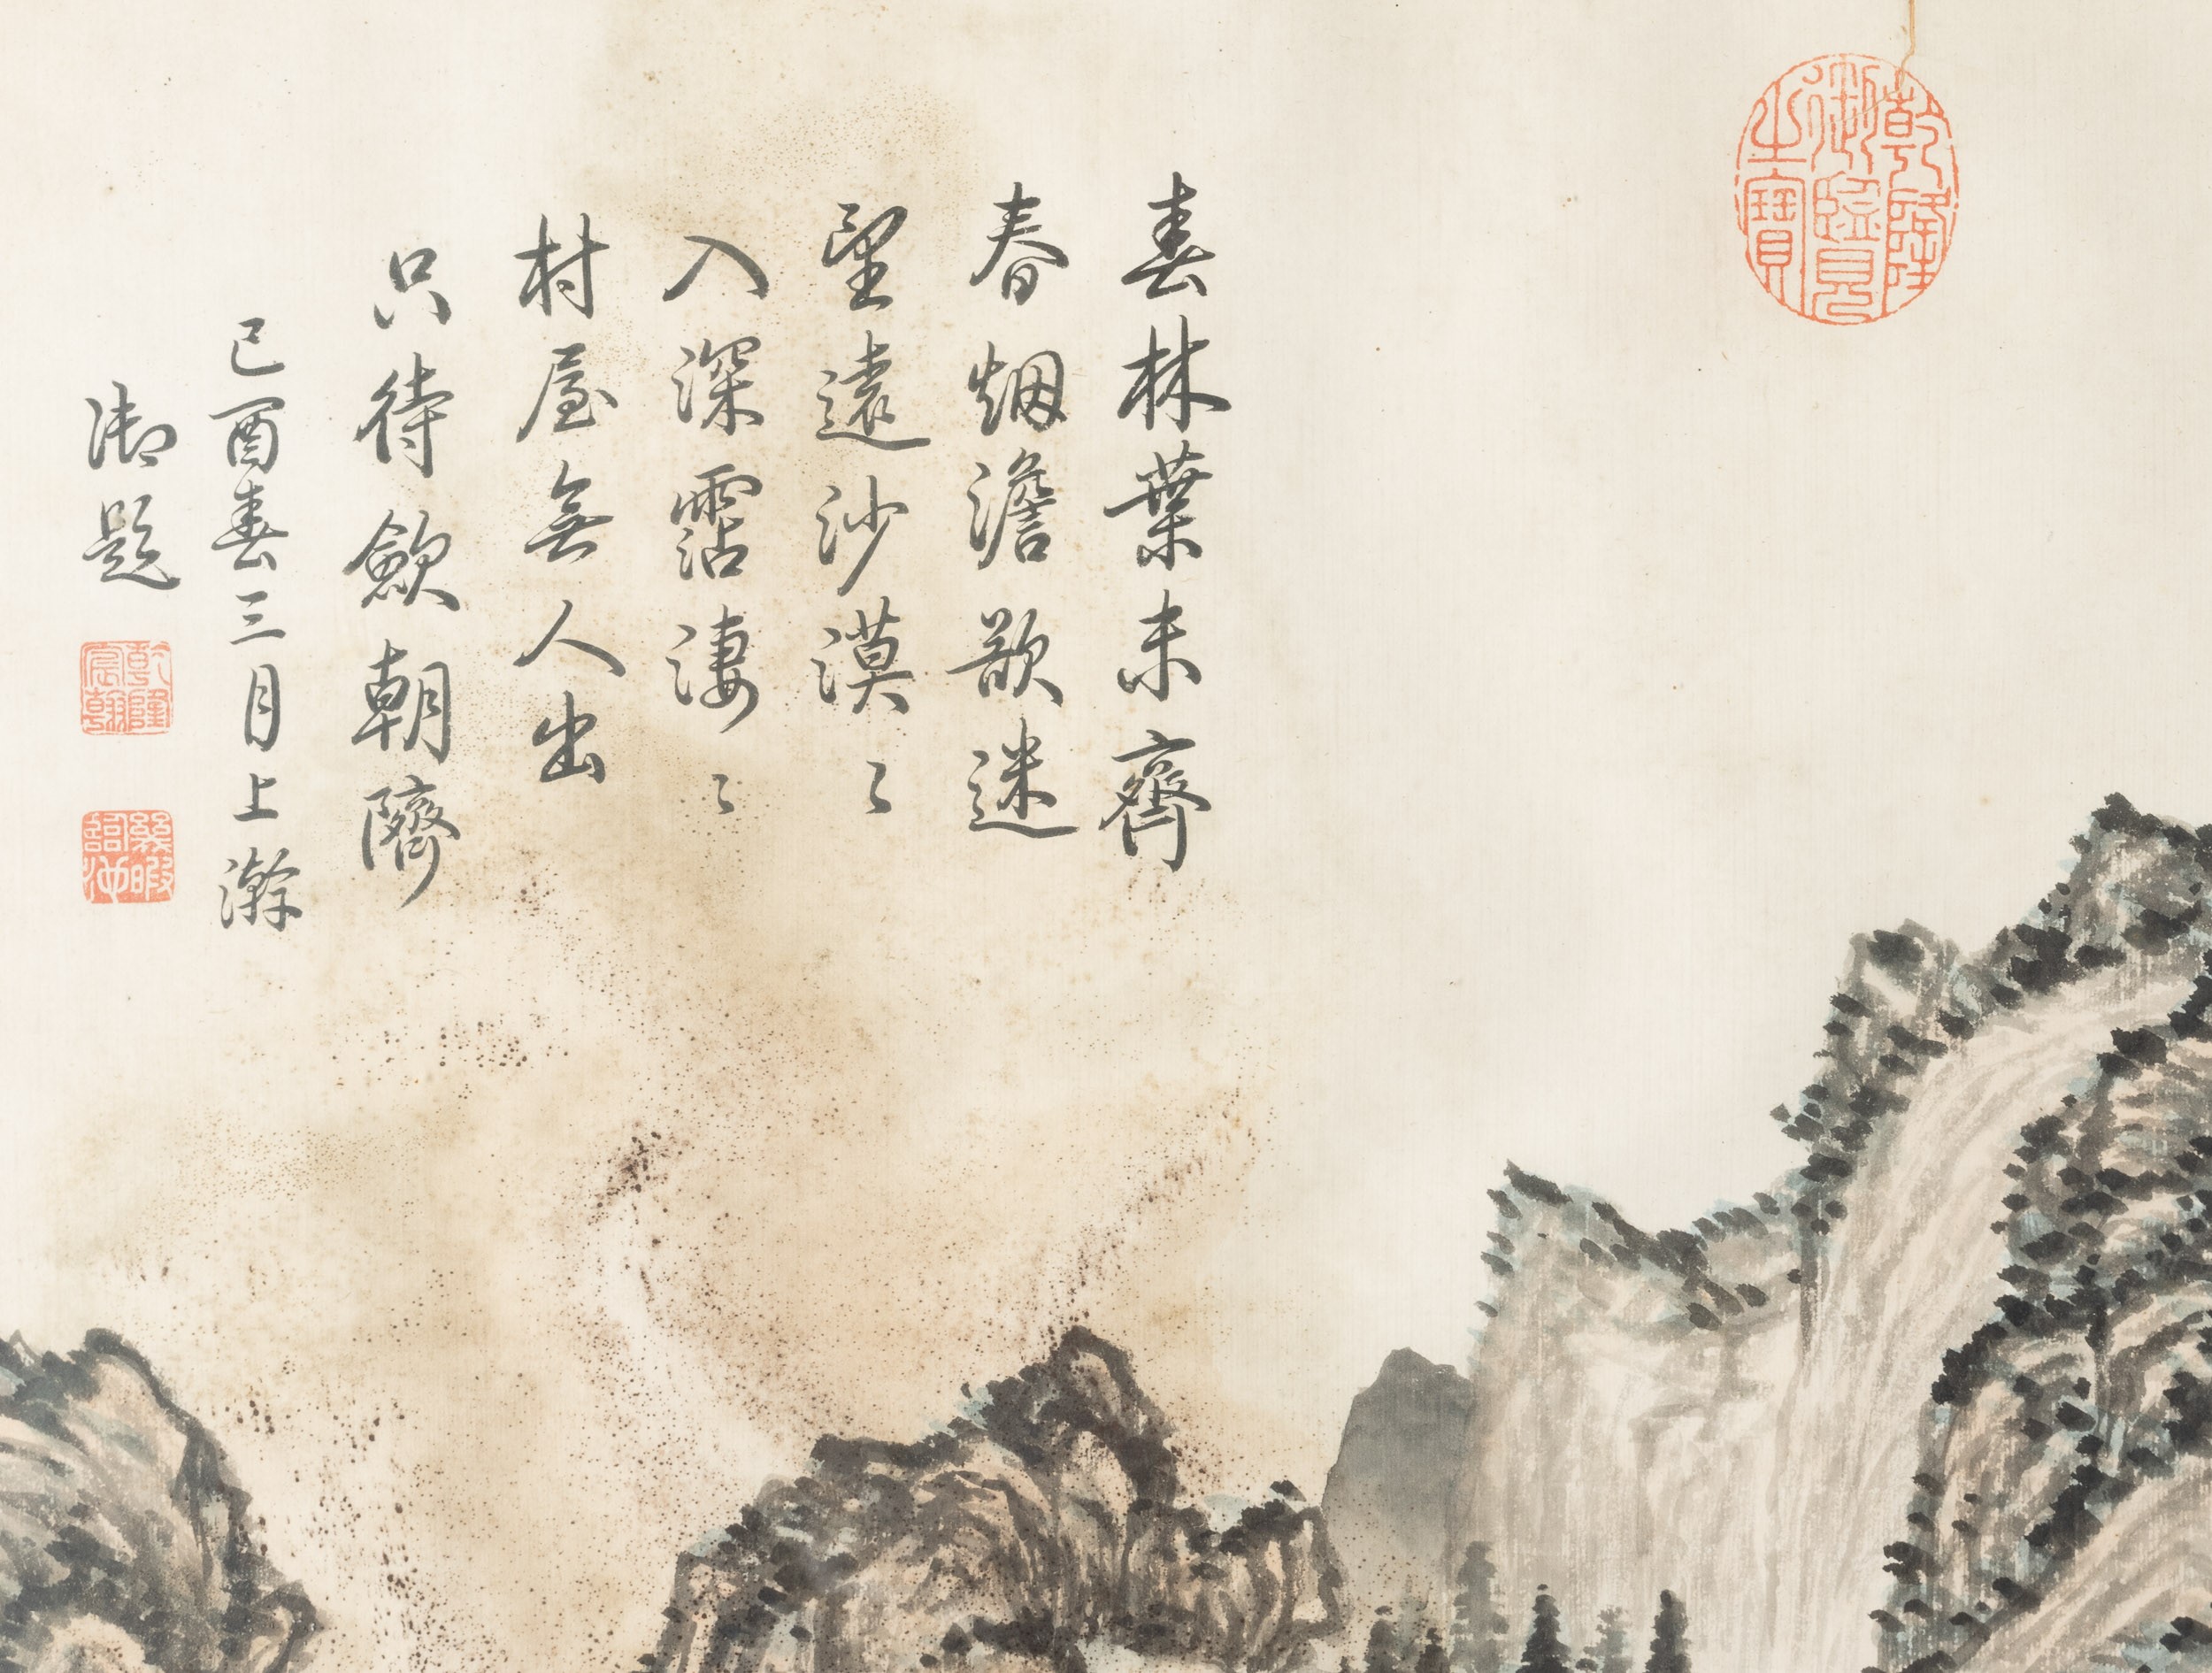 春林葉未齊
春烟澹欲迷
望遠沙漠〻
入深霑淒〻
村屋無人出
只待斂朝隮
己酉春三月上澣
御題
乾隆御覽之寶
乾隆宸翰
幾暇臨池